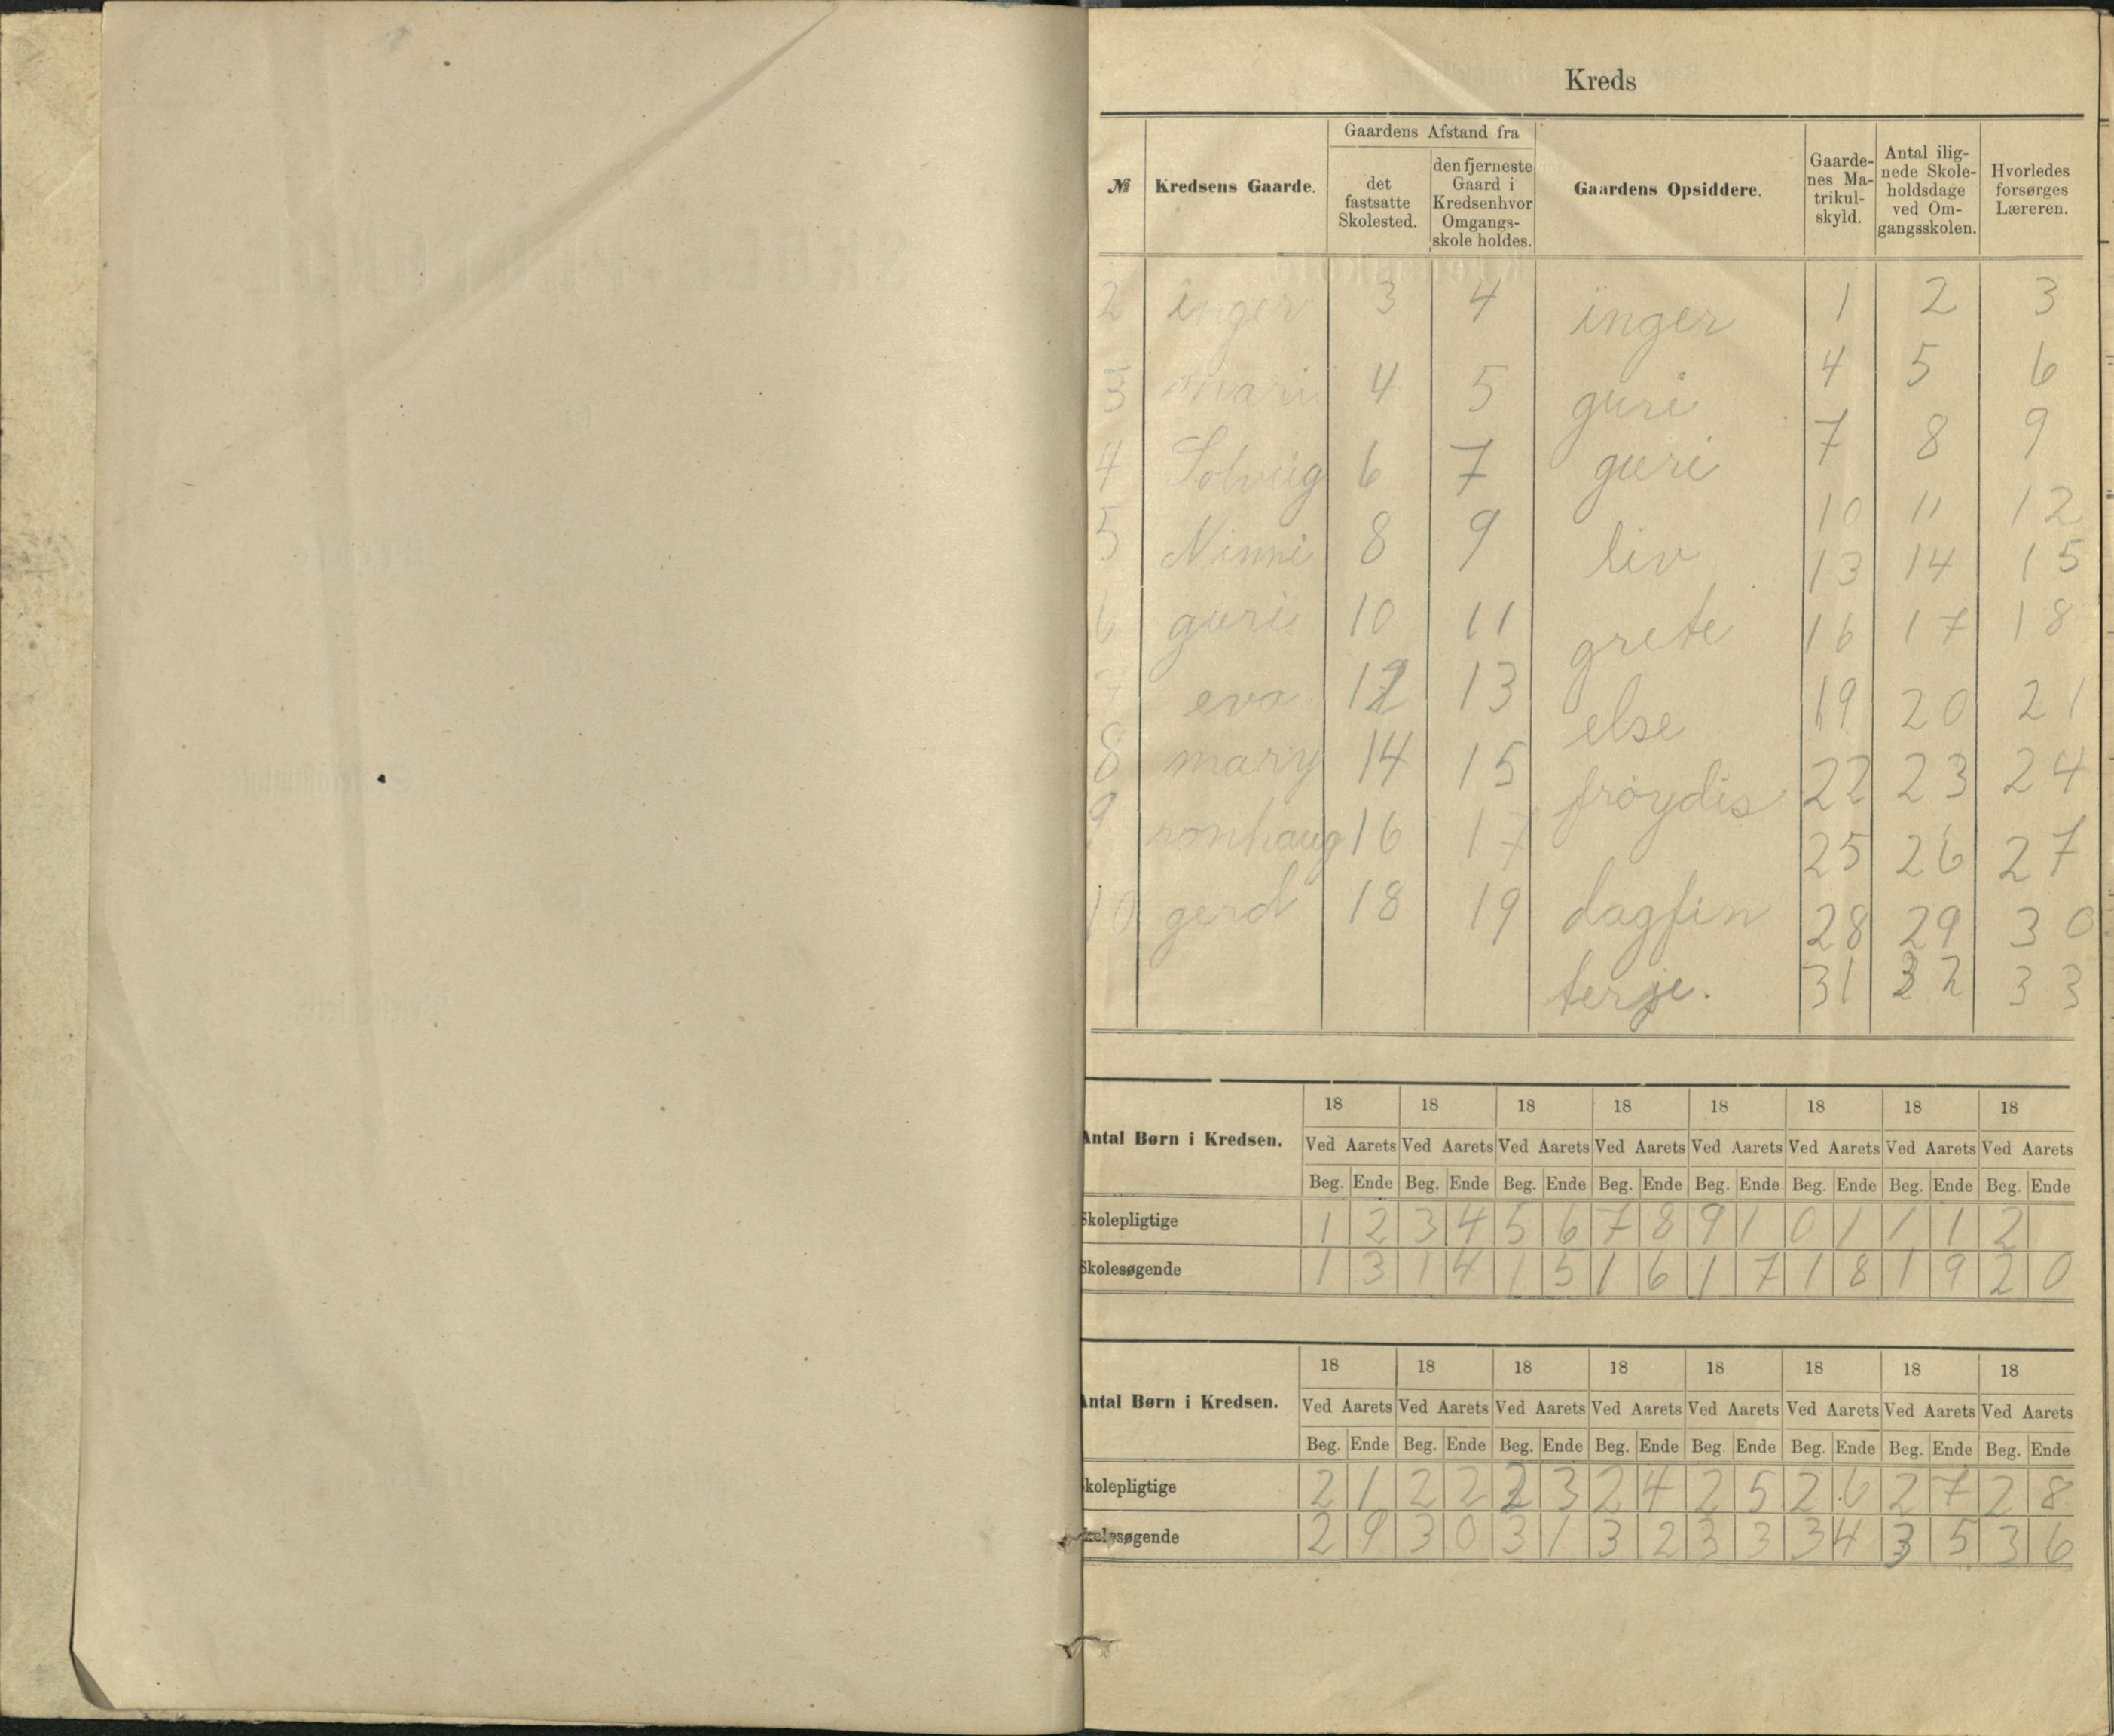 Kreds
№ Kredsens Gaarde. Gaardens Afstand fra det fastsatte Skolested. den fjerneste Gaard i Kredsen hvor Omgangs-skole holdes. Gaardens Opsiddere. Gaarde-nes Ma-trikul-skyld. Antal ilig-nede Skole-holdsdage ved Om-gangsskolen. Hvorledes forsørges Læreren.
2 inger 3 4 inger 1 2 3
3 mari 4 5 guri 4 5 6
4 Solveig 6 7 guri 7 8 9
5 Ninni 8 9 liv 10 11 12
13 14 15
6 guri 10 11 grete 16 17 18
7 eva 12 13 else 19 20 21
8 mary 14 15 frøydis 22 23 24
9 ronhaug 16 17 25 26 27
10 gerd 18 19 dagfin 28 29 30
terje. 31 32 33
Antal Børn i Kredsen. 18 18 18 18 18 18 18 18
Ved Aarets Ved Aarets Ved Aarets Ved Aarets Ved Aarets Ved Aarets Ved Aarets Ved Aarets
Beg. Ende Beg. Ende Beg. Ende Beg. Ende Beg. Ende Beg. Ende Beg. Ende Beg. Ende
Skolepligtige 1 2 3 4 5 6 7 8 9 1 0 1 1 1 2
Skolesøgende 1 3 1 4 1 5 1 6 1 7 1 8 1 9 2 0
Antal Børn i Kredsen. 18 18 18 18 18 18 18 18
Ved Aarets Ved Aarets Ved Aarets Ved Aarets Ved Aarets Ved Aarets Ved Aarets Ved Aarets
Beg. Ende Beg. Ende Beg. Ende Beg. Ende Beg. Ende Beg. Ende Beg. Ende Beg. Ende
Skolepligtige 2 1 2 2 2 3 2 4 2 5 2 6 2 7 2 8
Skolesøgende 2 9 3 0 3 1 3 2 3 3 3 4 3 5 3 6